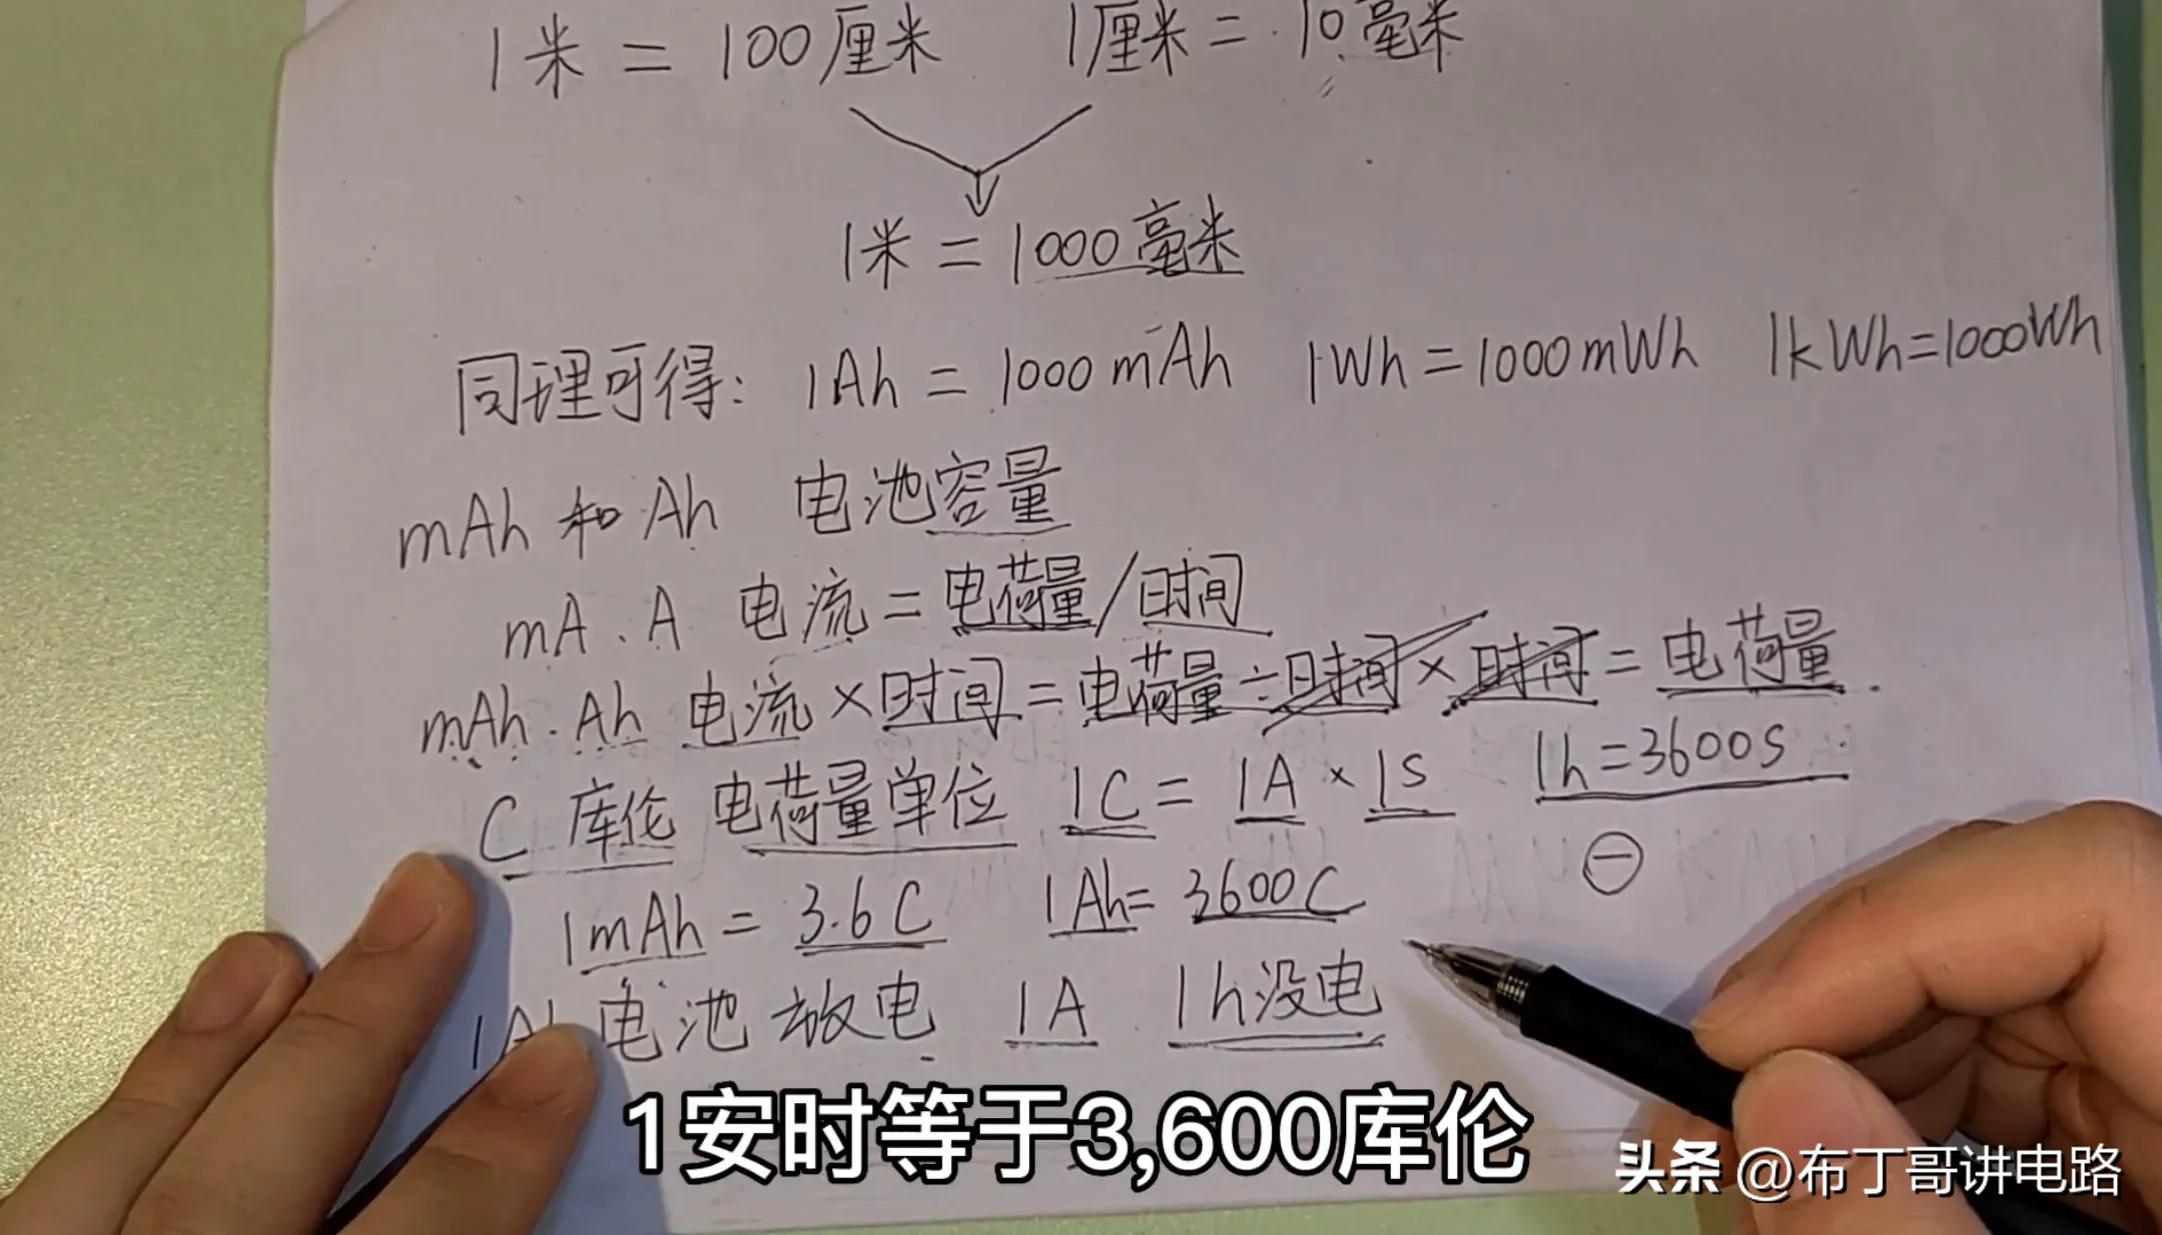 1米 = 100厘米 1厘米 = 10毫米
1米 = 1000毫米
同理可得: 1Ah = 1000mAh 1Wh = 1000mWh 1kWh=1000Wh
mAh 和 Ah 电池容量
mA . A 电流 = 电荷量/时间
mAh . Ah 电流 × 时间 = 电荷量 ÷ 时间 × 时间 = 电荷量
C 库伦 电荷量单位 1C = 1A × 1S 1h = 3600S
⊖
1mAh = 3.6C 1Ah = 3600C
电池 放电 1A 1h没电
1安时等于3,600库伦
头条 @布丁哥讲电路